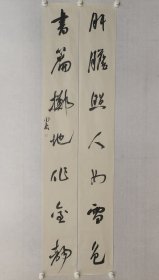 肝膽照人如雪色
書篇擲地作金聲